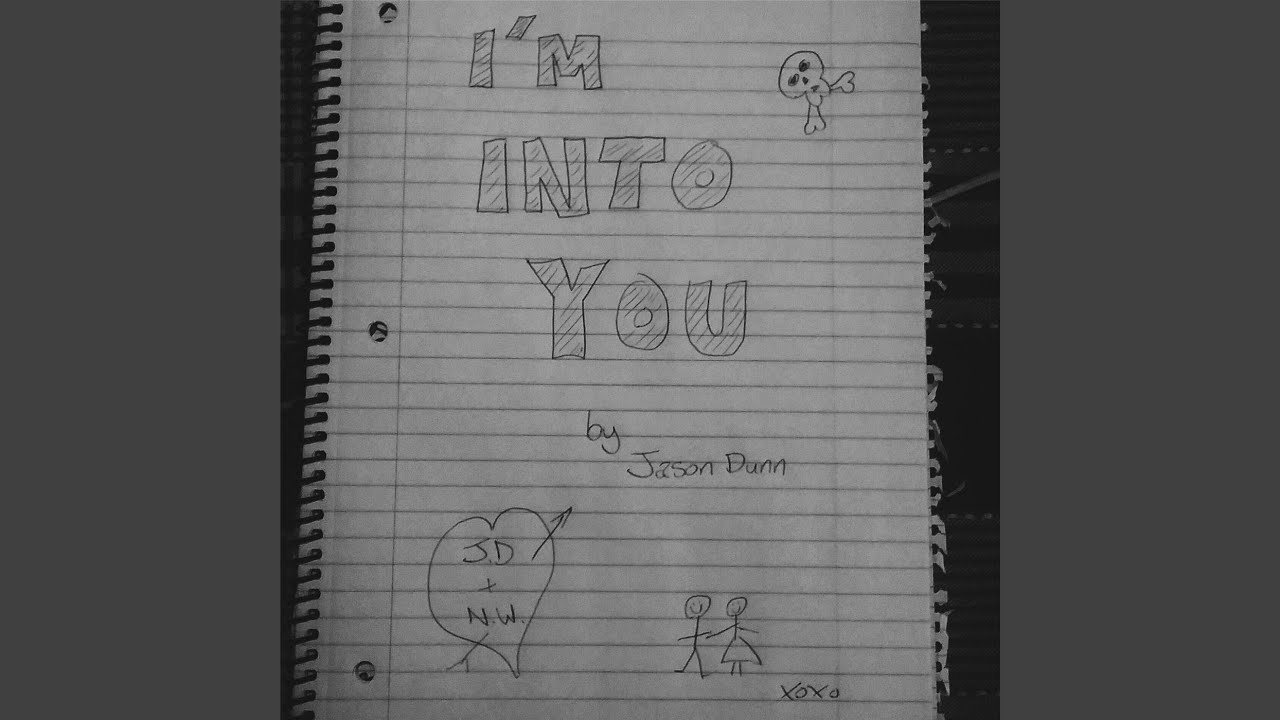 I'M
INTO
YOU
by
Jason Dunn
J.D
+
N.W.
xoxo